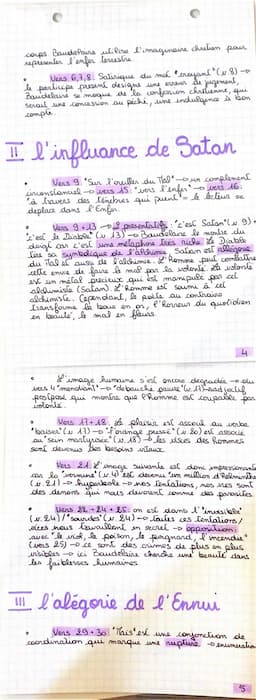 corps Baudelaire utilise l'imaginaire chrétien pour
représenter l'enfer terrestre.
• Vers 6,7,8: Satirique du mot "croyant" (v 8) →
le participe présent désigne une erreur de jugement,
Baudelaire se moque de la confession chrétienne, qui
serait une concession au péché, une indulgence à bon
compte.
II L'influance de Satan
• Vers 9: "Sur l'oreiller du Mal" → un complément
circonstanciel → vers 15: "vers l'enfer" → vers 16:
"à travers des ténèbres qui puent" = le lecteur se
déplace dans l'Enfer.
• Vers 9 + 13 → 2 présentatifs: "c'est Satan" (v 9)
"c'est le Diable" (v 13) → Baudelaire le montre du
doigt car c'est une métaphore très riche. Le Diable
la symbolique de l'alchimie. Satan est allégorie
du Mal et aussi de l'alchimie. L'Homme peut combattre
cette envie de faire le mal par la volonté. La volonté
est un métal précieux qui est manipulé par cet
alchimiste (Satan). L'Homme est soumis à cet
alchimiste. Cependant, le poète au contraire
transforme la boue en or, l'horreur du quotidien
en beauté, le mal en fleurs.
4
• L'image humaine s'est encore dégradée → du
vers 4 "mendiant" → "débauché pauvre" (v.17) → adjectif
postposé qui montre que l'Homme est coupable par
volonté.
• Vers 17 + 18: Le plaisir est associé au verbe
"baiser" (v 17) → "l'orange pressée" (v 20) est associé
au "sein martyrisé" (v 18) → les vices des Hommes
sont devenus des besoins vitaux.
• Vers 21: L'image suivante est donc impressionnante
car la "vermine" (v 4) est devenue "un million d'helminthes"
(v. 21) → hyperbole → nos tentations, nos vices sont
des démons qui nous dévorent comme des parasites.
• Vers 22 + 24 + 25: on est dans l'"invisible"
(v. 24) "sourdes" (v 24) → toutes ces tentations/
vices nous travaillent en secret → opposition:
avec "le viol, le poison, le poignard, l'incendie"
(vers 25) → ce sont des crimes de plus en plus
visibles → ici Baudelaire cherche une beauté dans
les faiblesses humaines
III L'alégorie de l'Ennui
• Vers 29 + 30: "Mais" est une conjonction de
coordination qui marque une rupture. → énumération
5